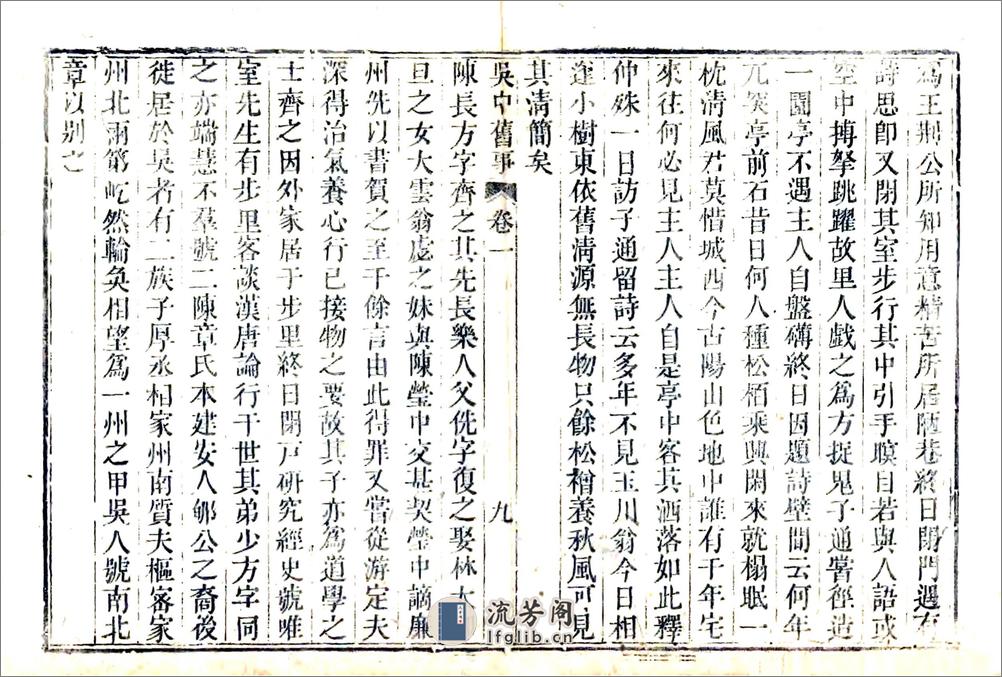 爲王荆公所知用意精苦所居陋巷終日閉門遇有
詩思卽又閉其室步行其中引手瞑目若與人語或
空中搏拏跳躍故里人戲之爲方捉鬼子通嘗徑造
一園亭不遇主人自盤礴終日因題詩壁間云何年
兀突亭前石昔日何人種松栢乘興閑來就榻眠一
枕清風君莫惜城西今古陽山色地中誰有千年宅
來往何必見主人主人自是亭中客其洒落如此釋
仲殊一日訪子通留詩云多年不見玉川翁今日相
逢小樹東依舊淸源無長物只餘松檜養秋風可見
其淸簡矣
吳中舊事 卷一 九
陳長方字齊之其先長樂人父侁字復之娶林大
旦之女大雲翁虙之妹與陳瑩中交甚契瑩中謫廉
州侁以書賀之至千餘言由此得罪又嘗從游定夫
深得治氣養心行已接物之要故其子亦爲道學之
士齊之因外家居于步里終日閉戸硏究經史號唯
室先生有步里客談漢唐論行于世其弟少方字同
之亦端慧不羣號二陳章氏本建安人郇公之裔後
徙居於吳者有二族子厚丞相家州南質夫樞密家
州北兩第屹然輪奐相望爲一州之甲吳人號南北
章以别之
流芳阁
lfglib.cn